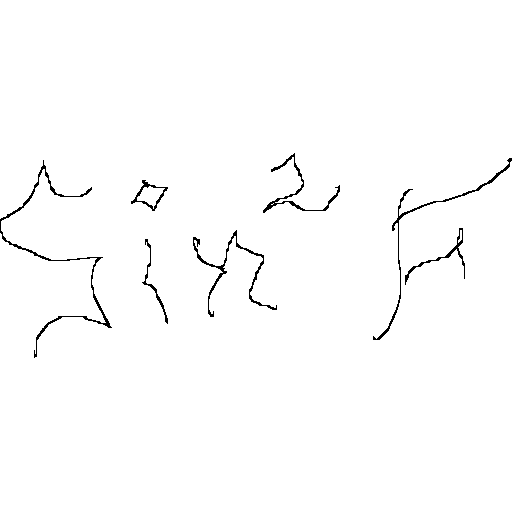 Sin² F